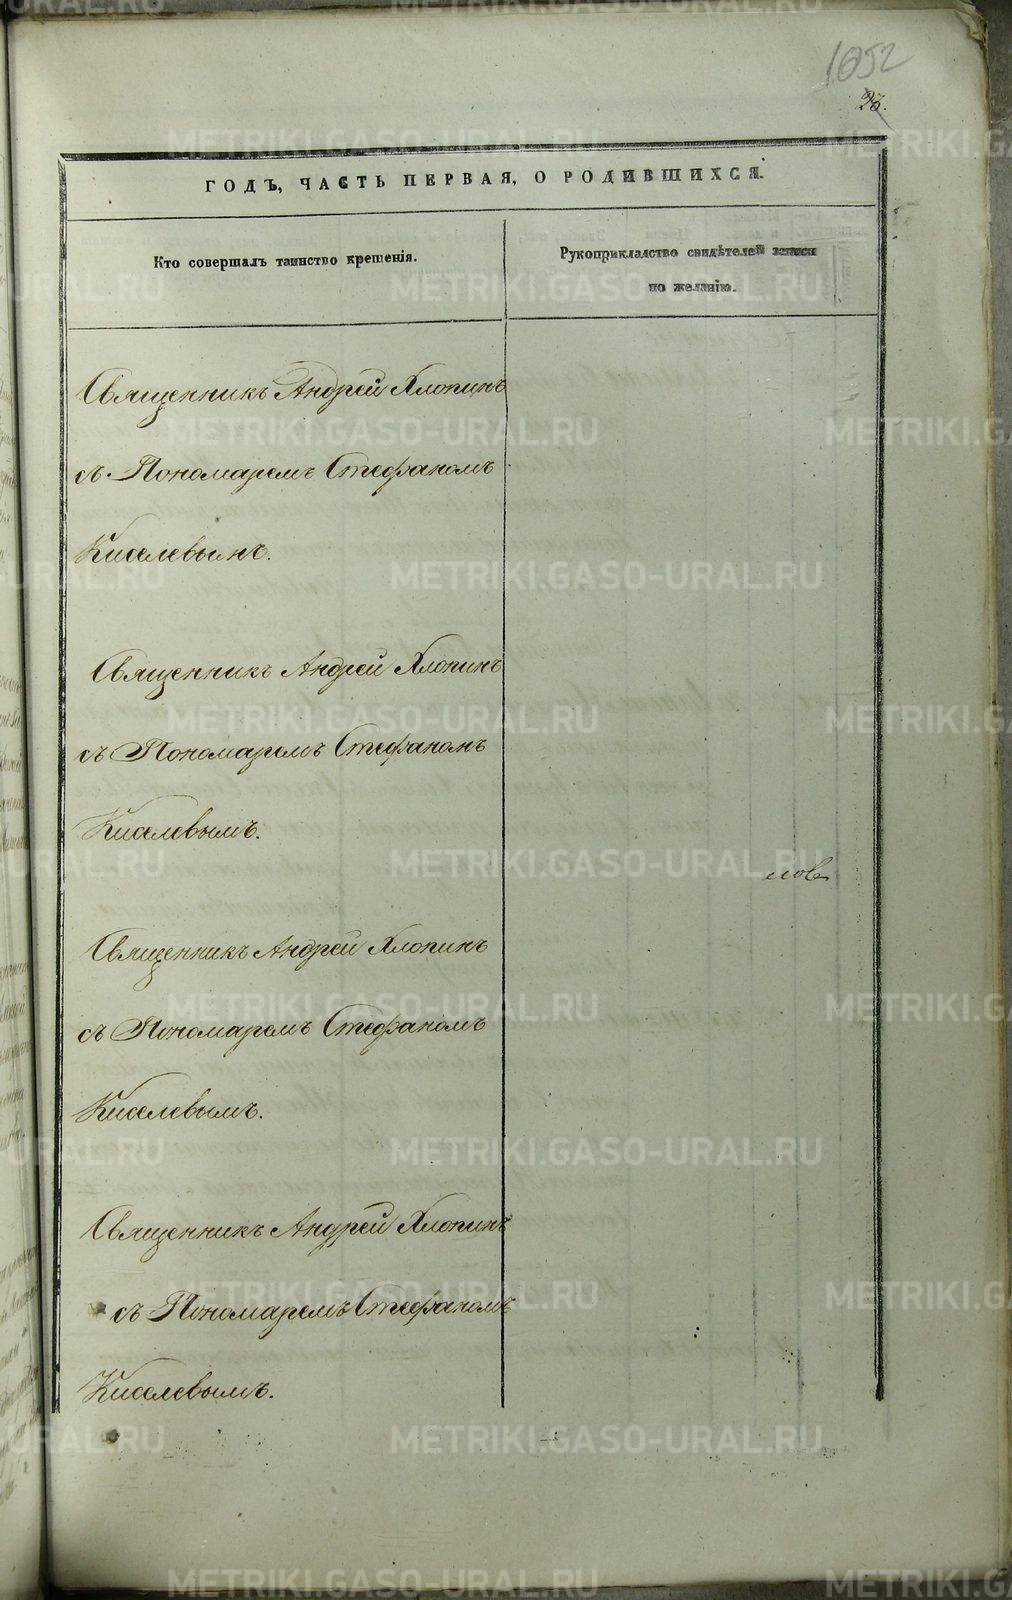 1052
23.
ГОДЪ, ЧАСТЬ ПЕРВАЯ, О РОДИВШИХСЯ.
Кто совершалъ таинство крещенія.
Рукоприкладство свидѣтелей записи
по желанію.
Священникъ Андрей Хлопинъ
съ Пономаремъ Стефаномъ
Киселевымъ.
Священникъ Андрей Хлопинъ
съ Пономаремъ Стефаномъ
Киселевымъ.
лов
Священникъ Андрей Хлопинъ
съ Пономаремъ Стефаномъ
Киселевымъ.
Священникъ Андрей Хлопинъ
съ Пономаремъ Стефаномъ
Киселевымъ.
METRIKI.GASO-URAL.RU